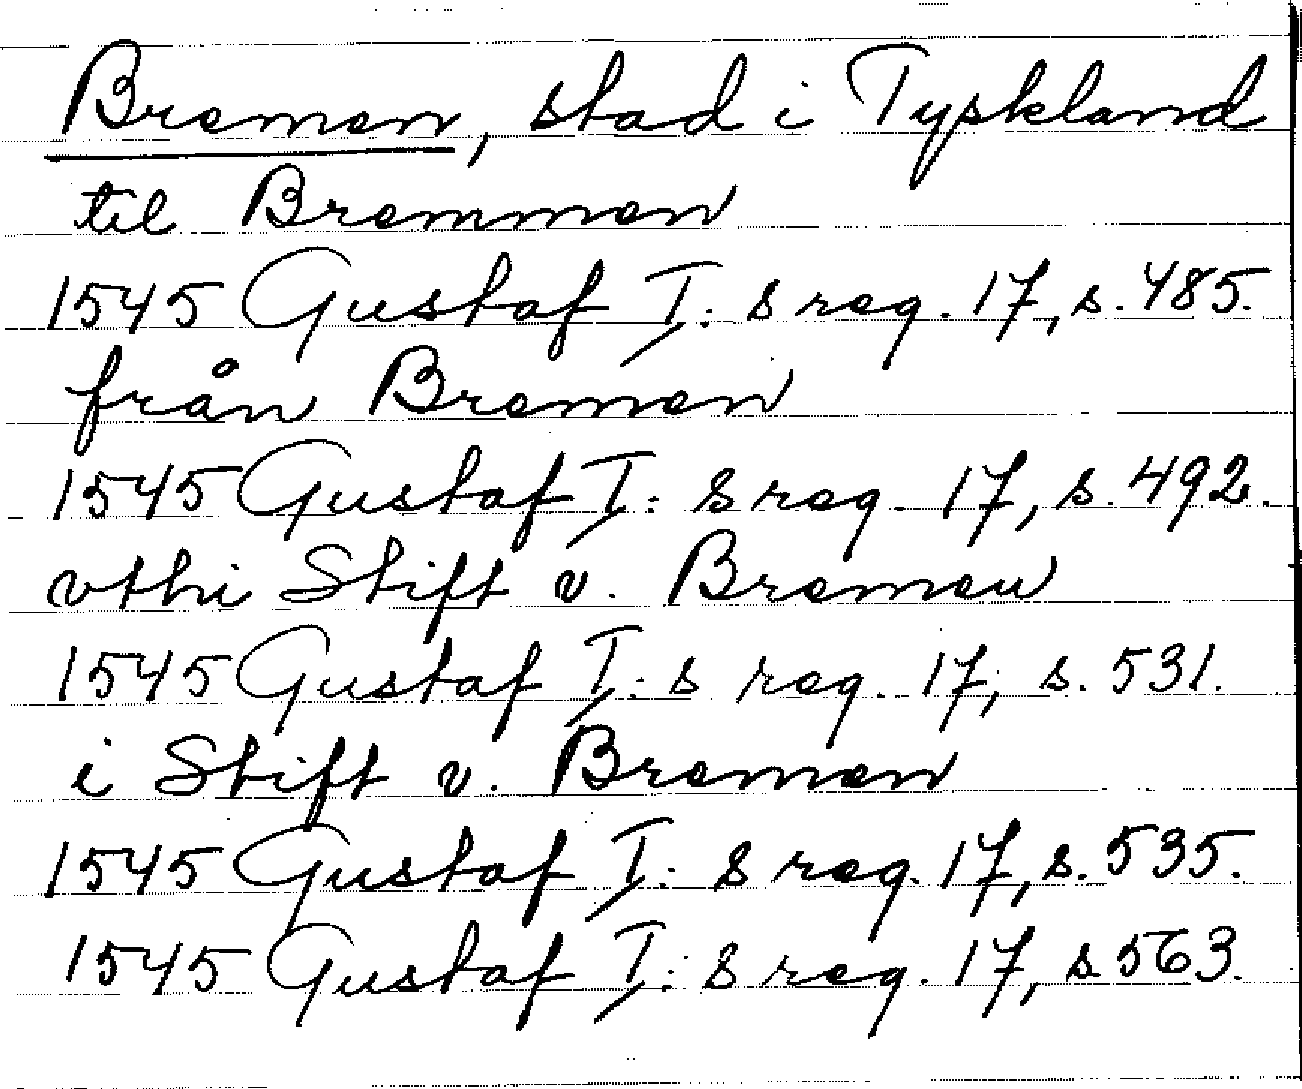 Bremen, stad i Tyskland
til Bremmen
1545 Gustaf I: s reg. 17, s. 485.
från Bremen
1545 Gustaf I: s reg. 17, s. 492.
vthi Stift v. Bremen
1545 Gustaf I: s reg. 17, s. 531.
i Stift v. Bremen
1545 Gustaf I: s reg. 17, s. 535.
1545 Gustaf I: s reg. 17, s 563.